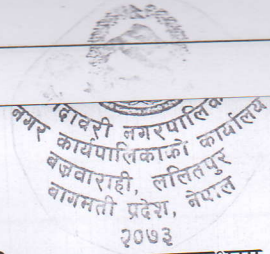 नगरपालिका
नगर कार्यपालिकाको कार्यालय
बज्रवाराही, ललितपुर
बागमती प्रदेश, नेपाल
२०७३